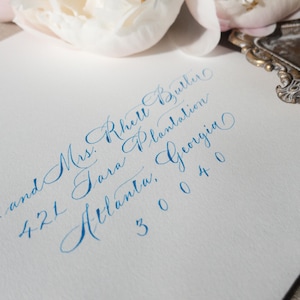 and Mrs. Rhett Butler
421 Tara Plantation
Atlanta, Georgia
30040